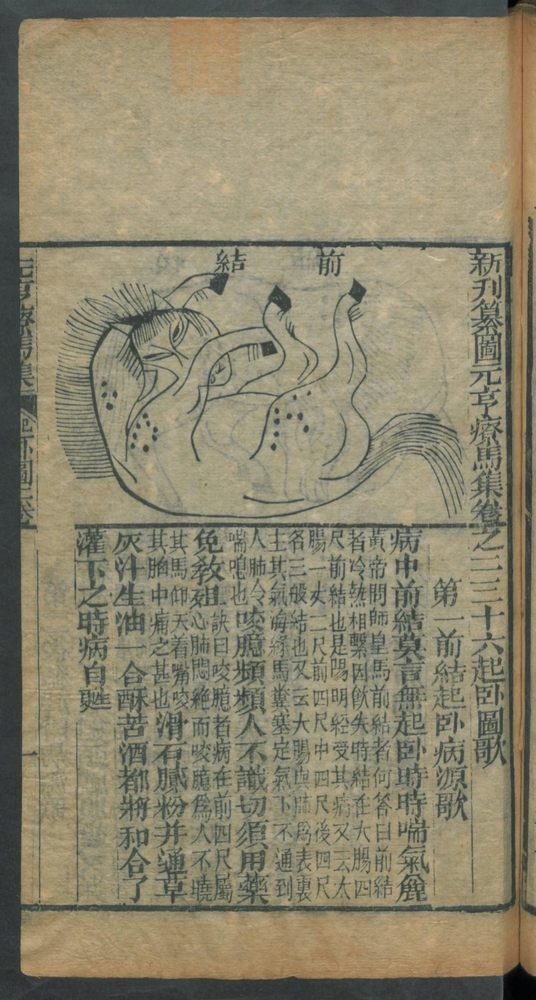 新刊纂圖元亨療馬集卷之二三十六起卧圖歌
前結
第一前結起卧病源歌
病中前結莫言無起卧時時喘氣麄
黄帝問師皇馬前結者何答曰前結
者冷熱相擊因飲失時結在大腸四
尺前結也是陽明經受其病又云大
腸一丈二尺前四尺中四尺後四尺
名三般結也又云大腸與肺爲表裏
主其氣海緣馬糞塞定氣下不通到
人肺令
喘唿也
咬臆頻頻人不識切須用藥
免教殂
訣曰咬臆者病在前四尺屬
心肺悶絶而咬臆爲人不曉
其馬仰天着嘴咬
其胸中痛之甚也
滑石膩粉并蓮草
灰汁生油一合酥苦酒都將和合了
灌下之時病自甦
元亨療馬集
起卧圖
一